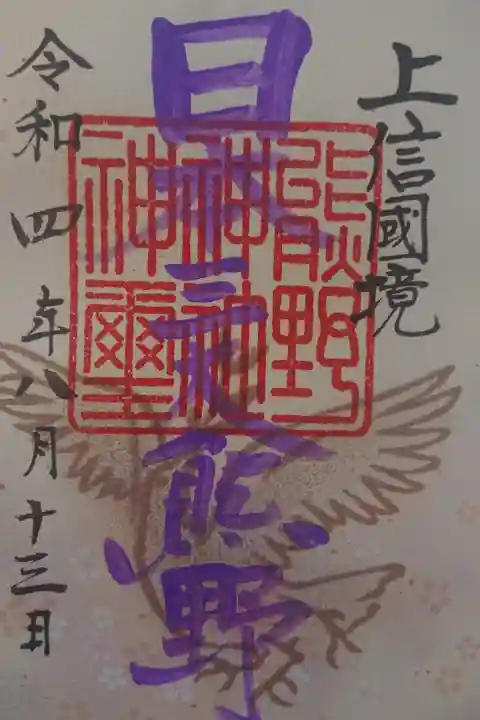 上信國境
日本三大熊野
熊野
神神社
神璽
令和四年八月十三日